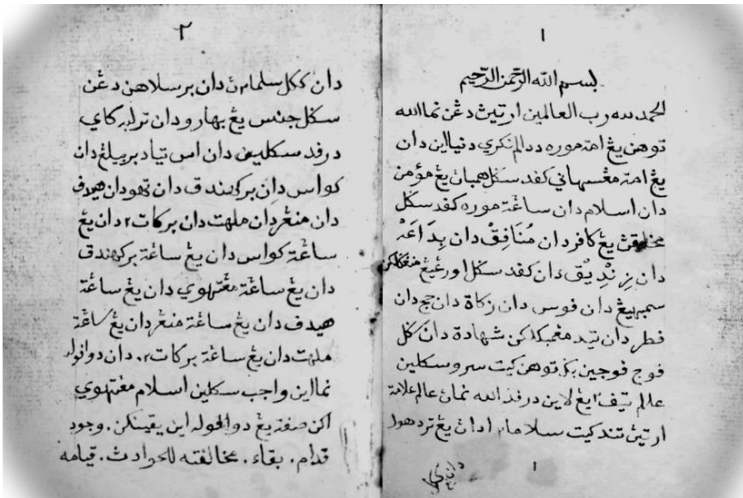 ١
بسم الله الرحمن الرحيم
الحمد لله رب العالمين ارتيڽ دڠن نما الله
توهن يڠ امة موره ددالم نكري دنيا اين دان
يڠ امة مڠسهاني كفد سكل همباڽ يڠ مؤمن
دان اسلام دان ساڠة موره كفد سكل
مخلوقڽ يڠ كافر دان مُنَافِقْ دان بِدَاعَهْ
دان زِنْدِيْقْ دان كفد سكل اورڠ يڠ
سمبهيڠ دان فوس دان زكاة دان حج دان
فطر دان تيد شهادة دان كل
فوج فوجين بك توهن كيت سرو سكلين
عالم تيف ايڠ لاين درفد الله نمان عالم علامة
ارتين تند كيت ادان يڠ تردهول
١
٢
دان ككل دان برسلاهن دڠن
سكل جنس يڠ بهارو دان تردير كاي
درفد سكلين دان اس تياد بربيلڠ دان
كواس دان بركهندق دان تهو دان هيدف
دان منڠر دان مليهت دان بركات٢ دان يڠ
ساڠة كواس دان يڠ ساڠة بركهندق
دان يڠ ساڠة مڠتهوي دان يڠ ساڠة
هيدف دان يڠ ساڠة منڠر دان يڠ ساڠة
مليهت دان يڠ ساڠة بركات٢. دان دوافوله
نما اين واجب سكلين اسلام مڠتهوي
اكن صفة يڠ دوافوله اين يقينكن. وجود
قدام. بقاء. مخالفته للحوادث. قيامه